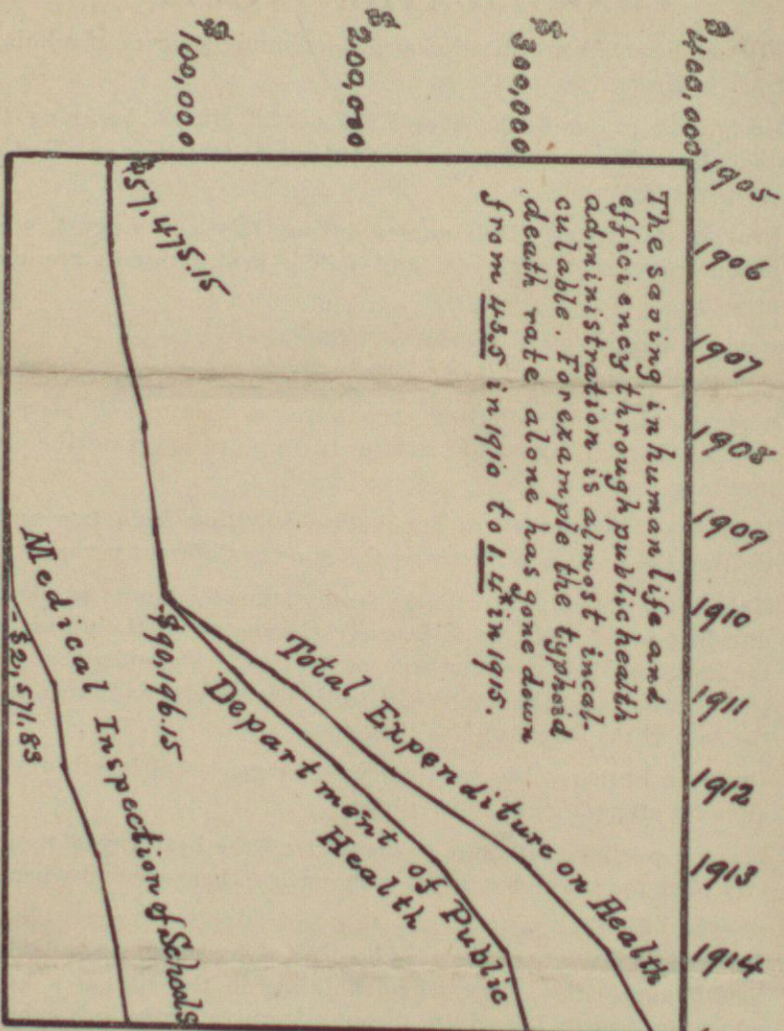 $400,000
$300,000
$200,000
$100,000
1905
1906
1907
1908
1909
1910
1911
1912
1913
1914
The saving in human life and
efficiency through public health
administration is almost incal-
culable. For example the typhoid
death rate alone has gone down
from 43.5 in 1910 to 1.4* in 1915.
$57,475.15
$90,196.15
Total Expenditure on Health
Department of Public
Health
Medical Inspection of Schools
$2,571.83